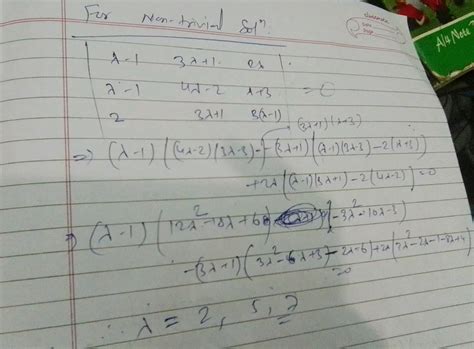 For Non-trivial Solⁿ.
| λ-1 3λ+1 2λ |
| λ-1 4λ-2 λ+3 | = 0
| 2 3λ+1 3(λ-1) |
(3λ+1)(λ+3)
⇒ (λ-1) ((4λ-2)(3λ-3) - - (3λ+1) ((λ-1)(3λ-3) - 2(λ+3))
+ 2λ ((λ-1)(3λ+1) - 2(4λ-2)) = 0
⇒ (λ-1) (12λ²-18λ+6) - 3λ²-10λ-3)
-(3λ+1) (3λ²-6λ+3) - 2λ-6) + 2λ (3λ²-2λ-1-8λ+4)
=0
∴ λ = 2, 5,
classmate
Date
Page
A4 Note